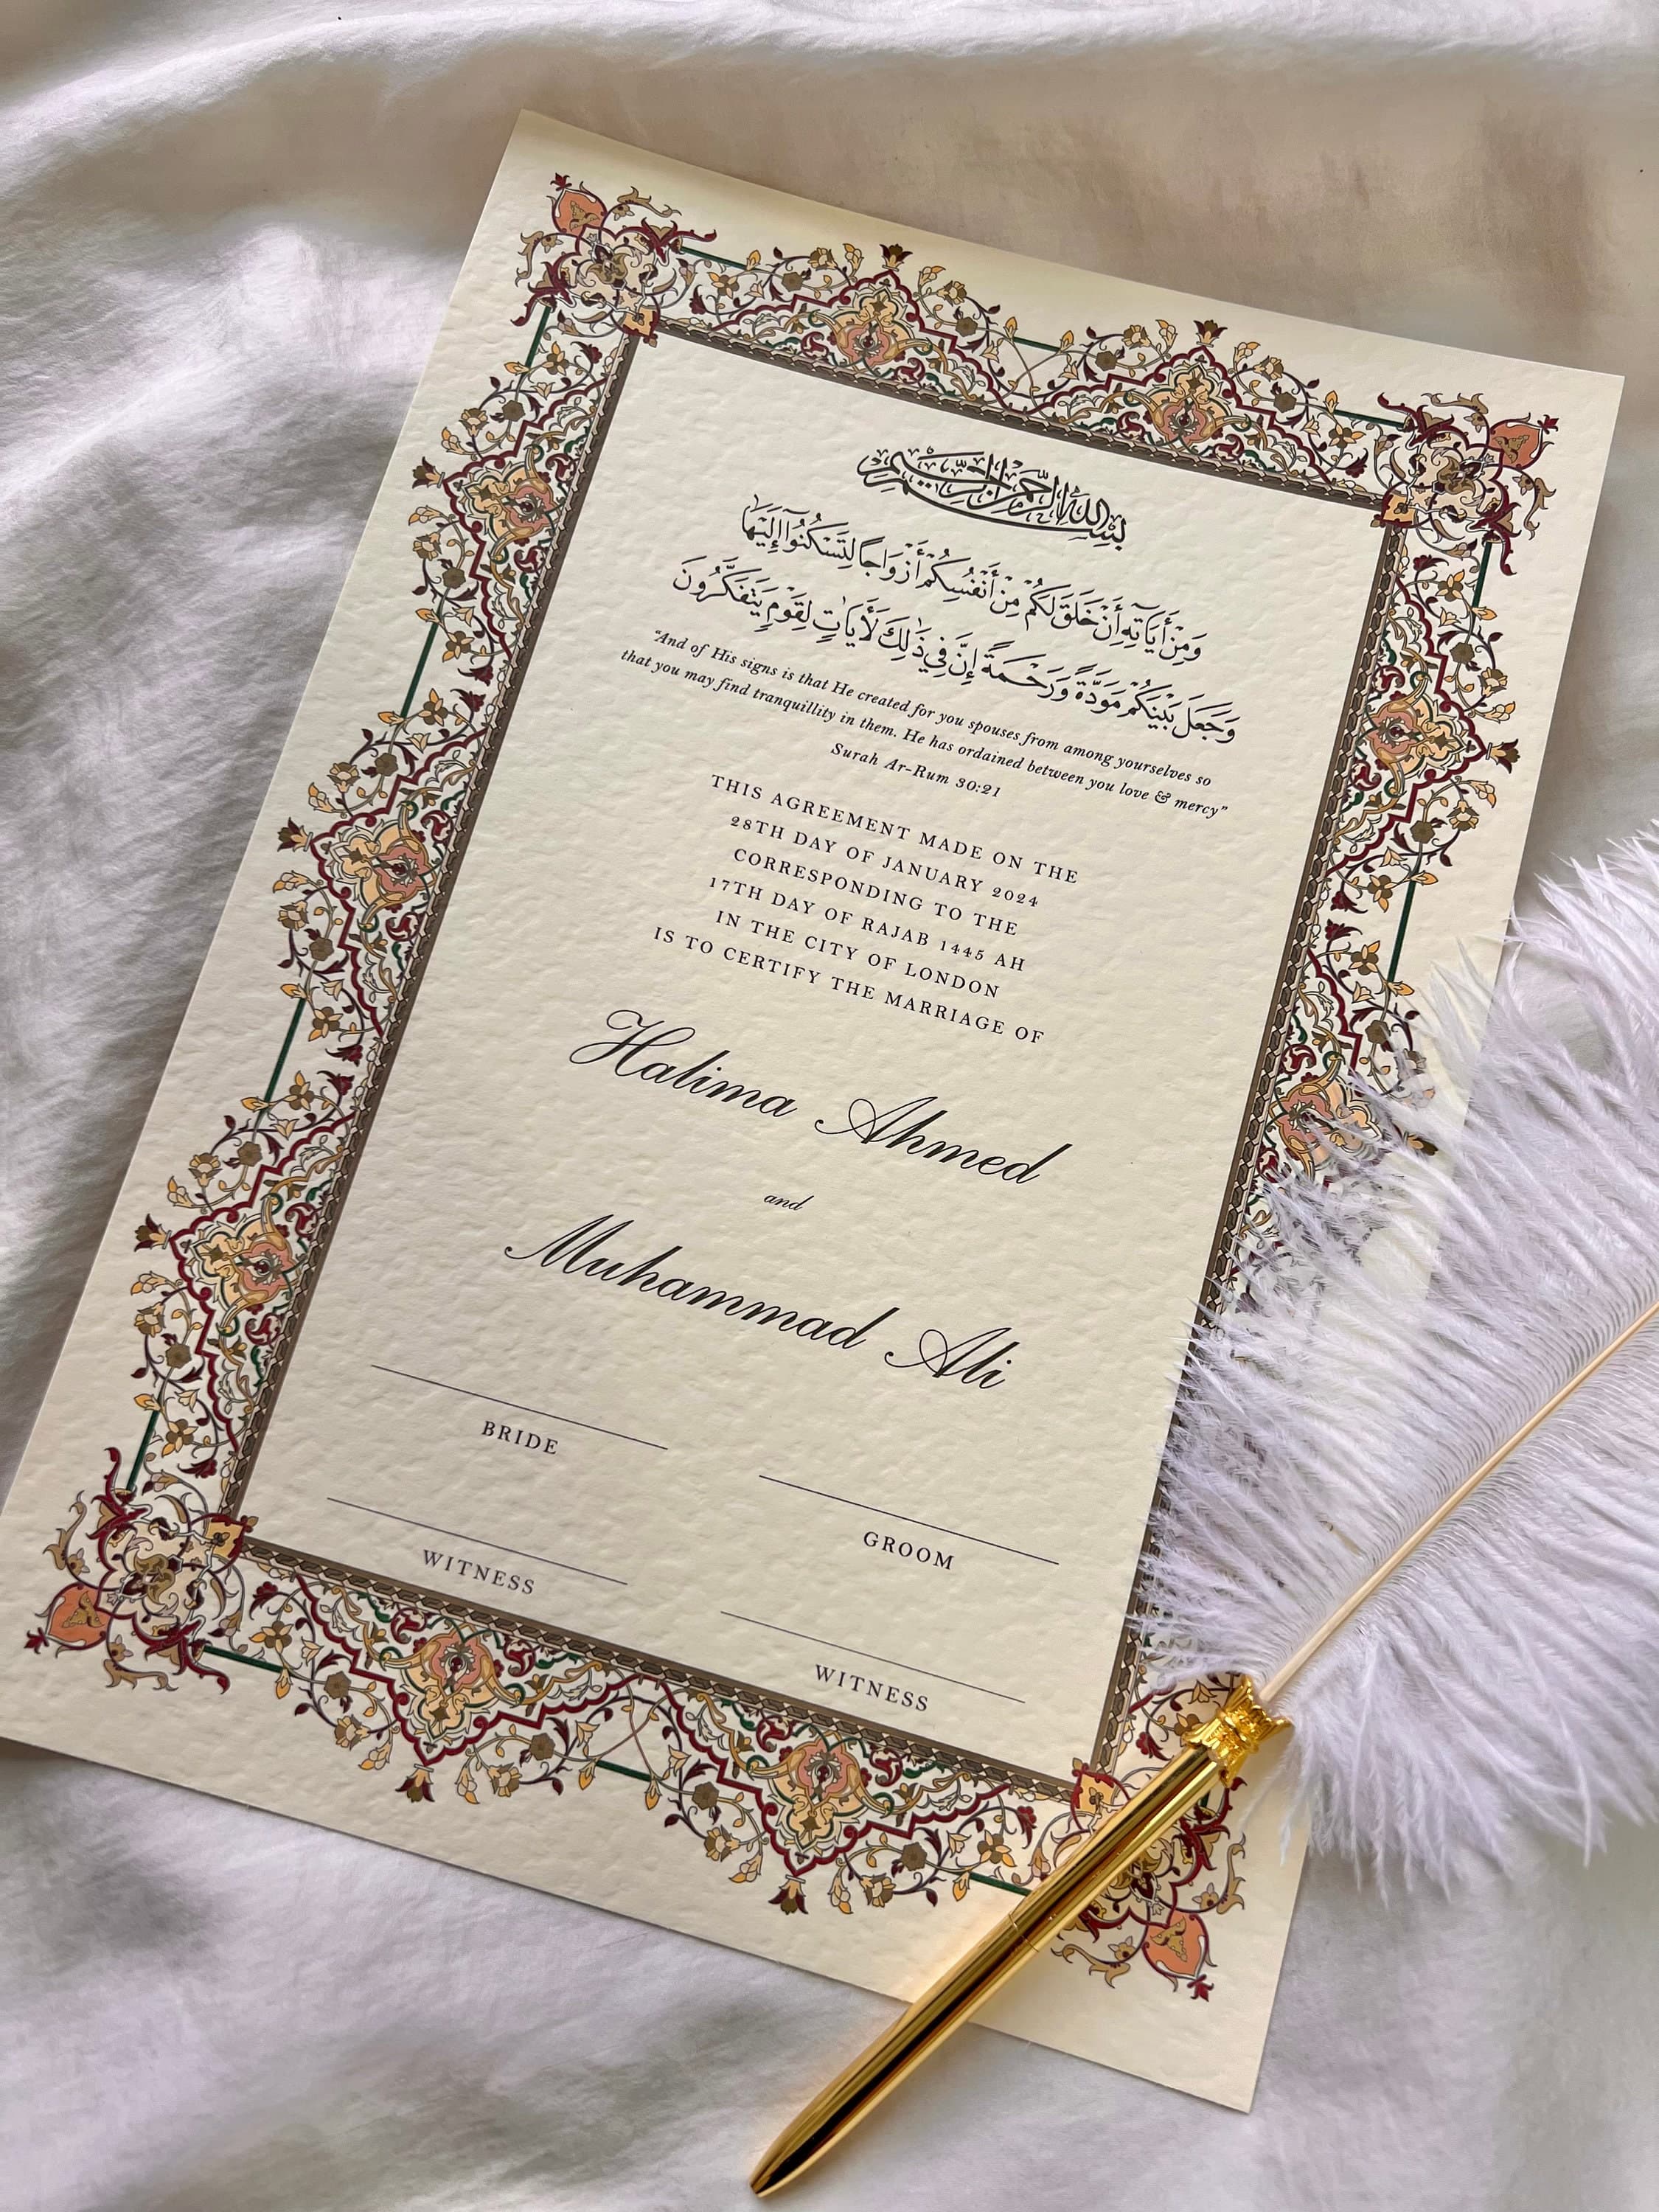 بِسْمِ اللهِ الرَّحْمٰنِ الرَّحِيمِ
وَمِنْ أَيَاتِهِ أَنْ خَلَقَ لَكُمْ مِنْ أَنْفُسِكُمْ أَزْوَاجًا لِتَسْكُنُوا إِلَيْهَا
وَجَعَلَ بَيْنَكُمْ مَوَدَّةً وَرَحْمَةً إِنَّ فِي ذٰلِكَ لَأَيَاتٍ لِقَوْمٍ يَتَفَكَّرُونَ
"And of His signs is that He created for you spouses from among yourselves so
that you may find tranquillity in them. He has ordained between you love & mercy"
Surah Ar-Rum 30:21
THIS AGREEMENT MADE ON THE
28TH DAY OF JANUARY 2024
CORRESPONDING TO THE
17TH DAY OF RAJAB 1445 AH
IN THE CITY OF LONDON
IS TO CERTIFY THE MARRIAGE OF
Halima Ahmed
and
Muhammad Ali
BRIDE
GROOM
WITNESS
WITNESS